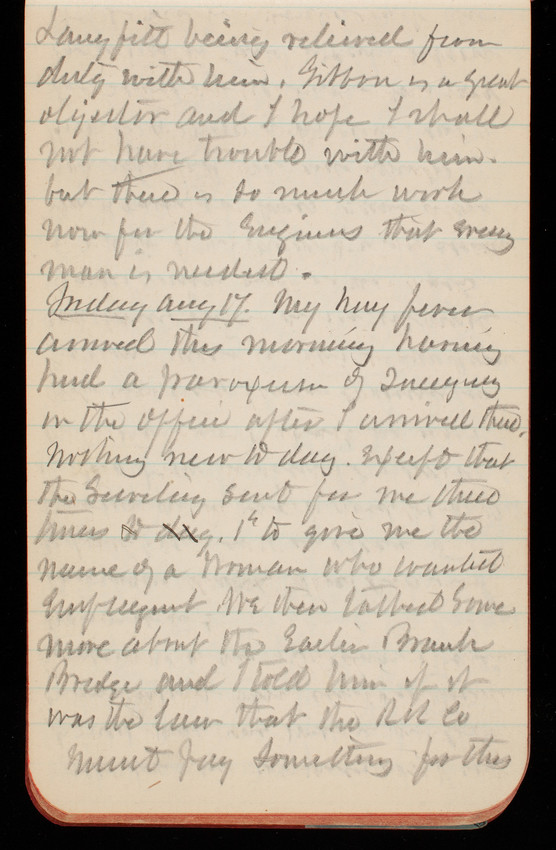 Langfitt being relieved from
duty with him. Gibbon is a great
objector and I hope I shall
not have trouble with him.
but there is so much work
now for the Engineers that every
man is needed.
Friday Aug 17. My hay fever
arrived this morning having
had a paroxysm of sneezing
in the office after I arrived there.
Nothing new to day. Except that
the Secretary sent for me three
times to day. 1st to give me the
name of a woman who wanted
Employment. We then talked some
more about the Eastern Branch
Bridge and I told him if it
was the law that the RR Co
must pay something for this